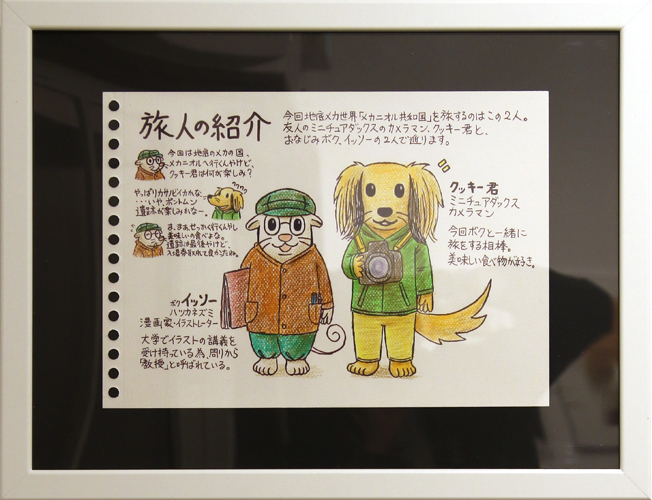 旅人の紹介
今回地底メカ世界「メカニオル共和国」を旅するのはこの2人。
友人のミニチュアダックスのカメラマン、クッキー君と、
おなじみボク、イッソーの2人で巡ります。
今回は地底のメカの国、
メカニオルへ行くんやけど、
クッキー君は何が楽しみ?
やっぱりカサノビイカかな
・・・いや、ポントムン
遺跡が楽しみかなー。
ま、まぁ、せっかく行くんやし
美味しいの食べよな。
遺跡は最後やけど、
クッキー君
ミニチュアダックス
カメラマン
今回ボクと一緒に
旅をする相棒。
美味しい食べ物が好き。
ボク イッソー
ハツカネズミ
漫画家・イラストレーター
大学でイラストの講義を
受け持っている為、周りから
「教授」と呼ばれている。